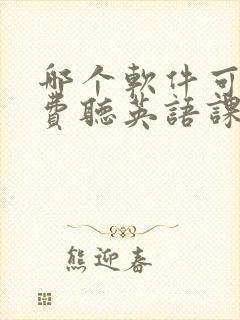 哪个軟件可
費聽英語課
熊迎春